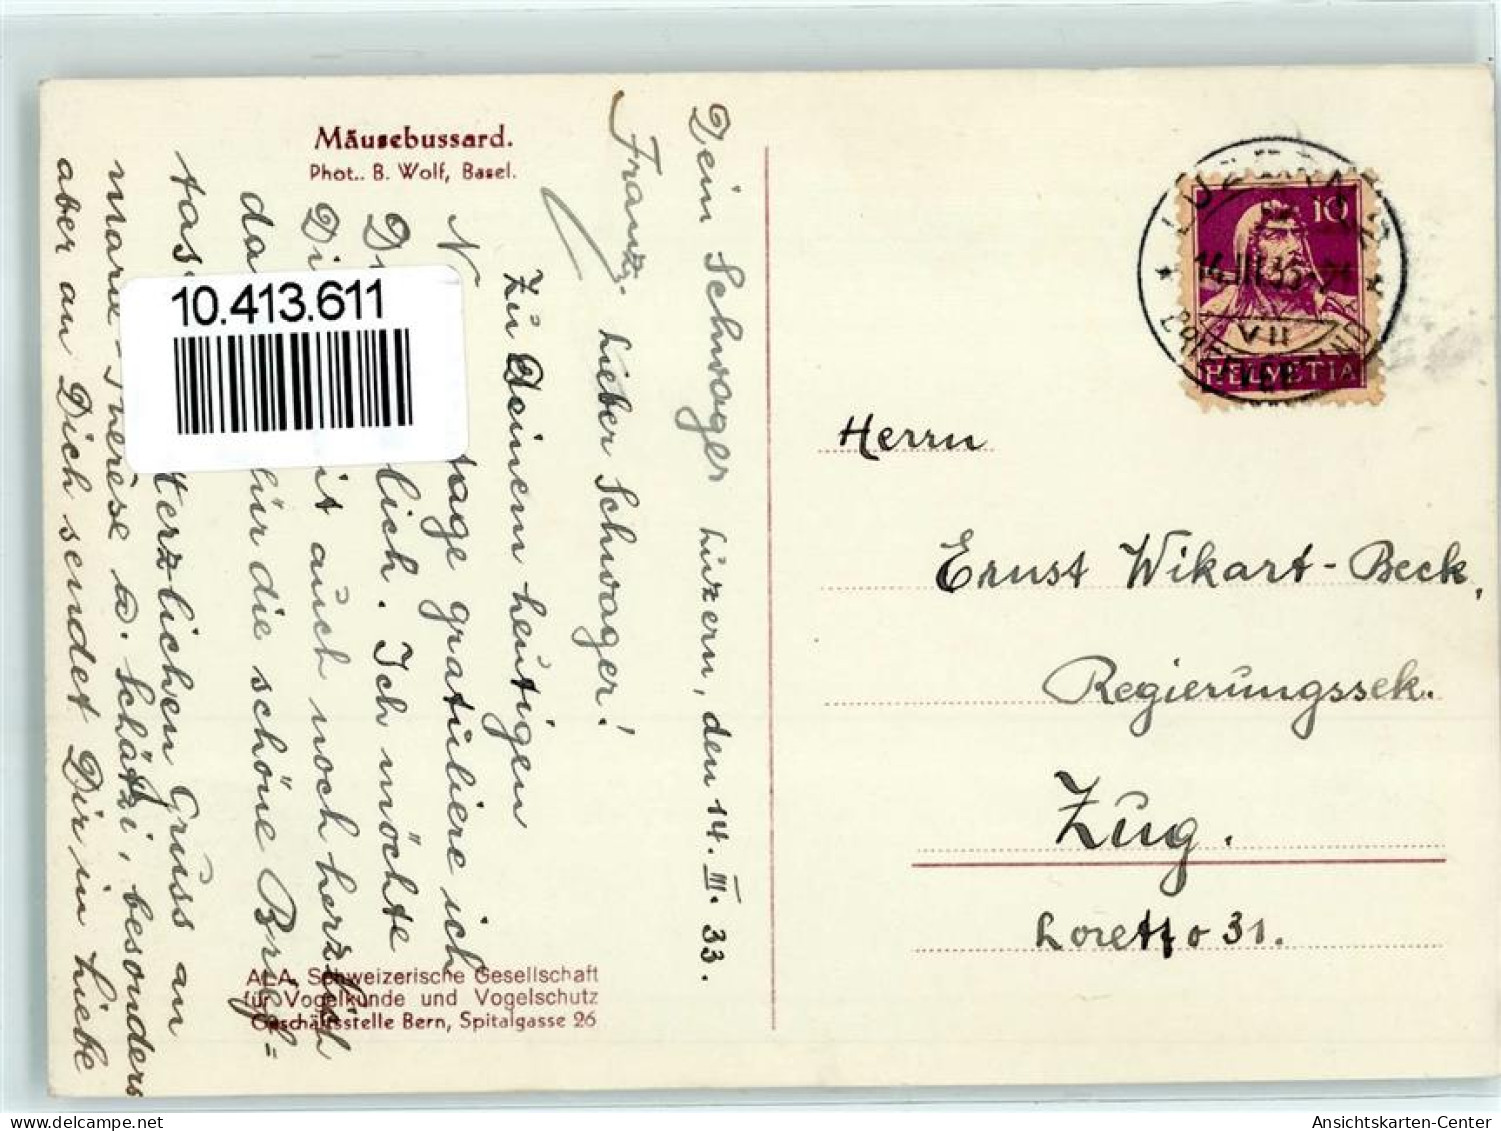 Mäusebussard.
Phot.. B. Wolf, Basel.
10.413.611
Luzern, den 14. III. 33.
Lieber Schwager!
Zu Deinem heutigen
N tage gratuliere ich
D lich. Ich möchte
Di it auch noch herzlich
da für die schöne Brief=
tas erzlichen Gruss an
marie-Therèse u. Schätzi, besonders
aber an Dich sendet Dir in Liebe
Dein Schwager
Franz.
ALA, Schweizerische Gesellschaft
für Vogelkunde und Vogelschutz
Geschäftsstelle Bern, Spitalgasse 26
LUZERN 2
14.III.33
VII
BRIEFVERSAND
10
HELVETIA
Herrn
Ernst Wikart-Beck,
Regierungssek.
Zug.
Loretto 31.
Ansichtskarten-Center